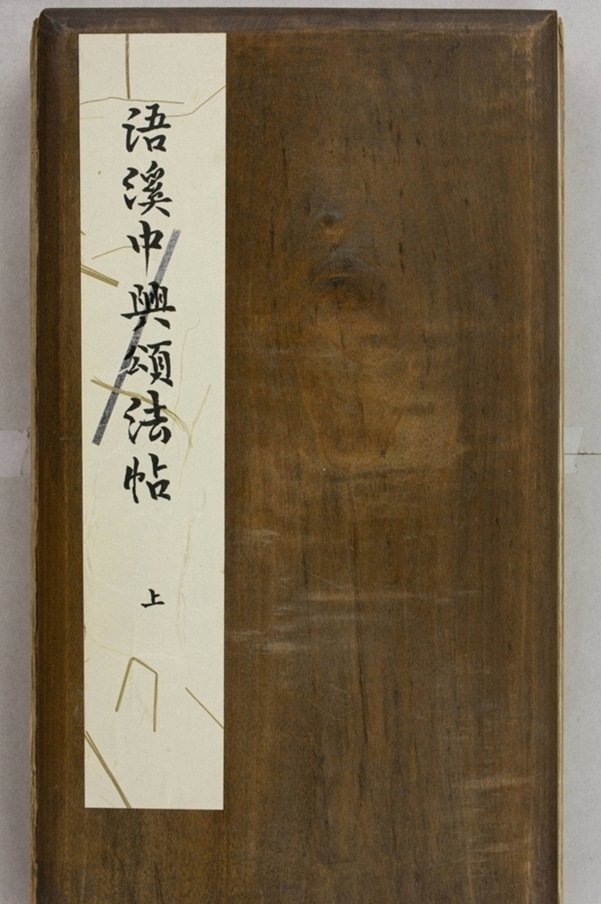 浯溪中興頌法帖
上